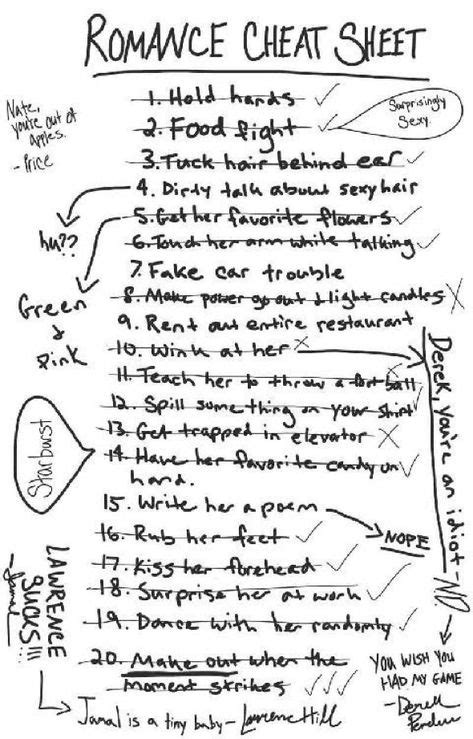 ROMANCE CHEAT SHEET
Nate,
you're out of
apples.
- Price
1. Hold hands ✓
2. Food fight ✓
Surprisingly
Sexy.
3. Tuck hair behind ear ✓
4. Dirty talk about sexy hair
hu??
5. Get her favorite flowers ✓
Green
&
pink
6. Touch her arm while talking ✓
7. Fake car trouble
8. Make power go out & light candles X
9. Rent out entire restaurant
10. Wink at her X
Derek, you're an idiot - NO
11. Teach her to throw a foot ball X
12. Spill something on your shirt ✓
13. Get trapped in elevator X
14. Have her favorite candy on ✓
hand.
Starburst
15. Write her a poem
NOPE
16. Rub her feet ✓
17. Kiss her forehead ✓
18. Surprise her at work ✓
19. Dance with her randomly ✓
20. Make out when the
moment strikes ✓✓✓
LAWRENCE
SUCKS!!!
- Jamal
Jamal is a tiny baby - Lawrence Hill
YOU WISH YOU
HAD MY GAME
- Derek